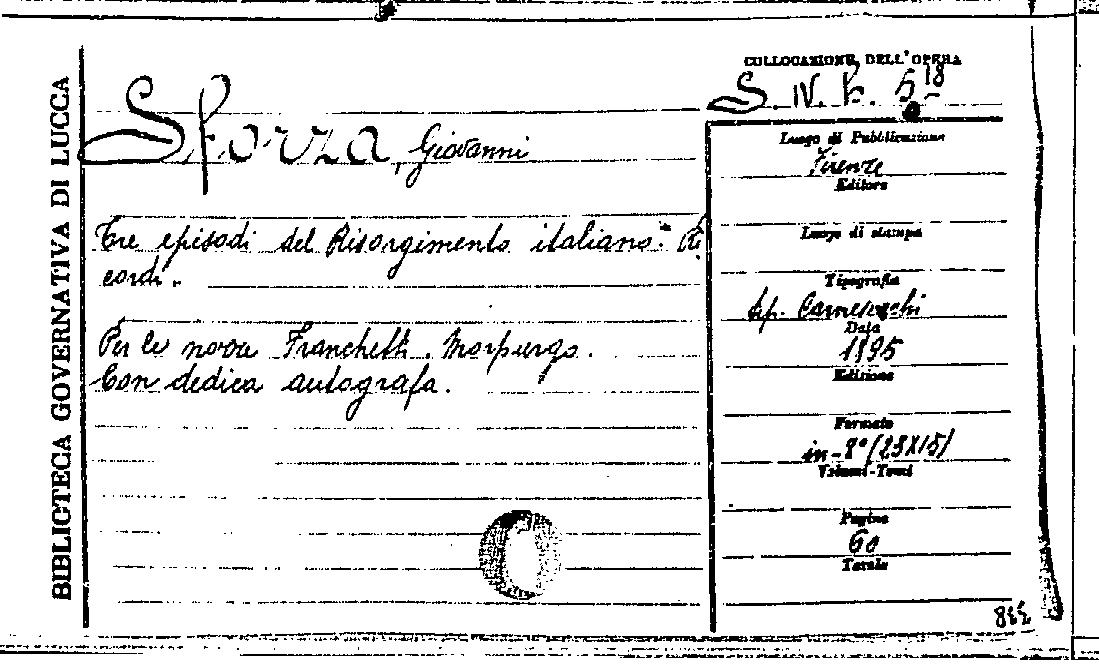 BIBLIOTECA GOVERNATIVA DI LUCCA
COLLOCAZIONE DELL'OPERA
S. IV. b. 5 18
Sforza, Giovanni
Tre episodi del Risorgimento italiano. Ri
cordi.
Per le nozze Franchetti. Morpurgo.
Con dedica autografa.
Luogo di Pubblicazione
Firenze
Editore
Luogo di stampa
Tipografia
tip. Carnesecchi
Data
1895
Edizione
Formato
in-8° (23X15)
Volumi-Tomi
Pagine
60
Tavole